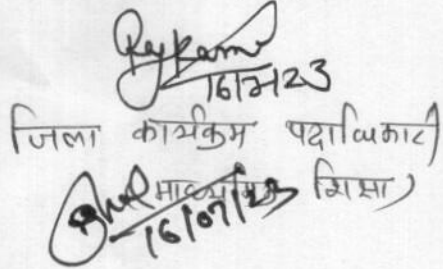 16/7/23
जिला कार्यक्रम पदाधिकारी
माध्यमिक शिक्षा
16/07/23